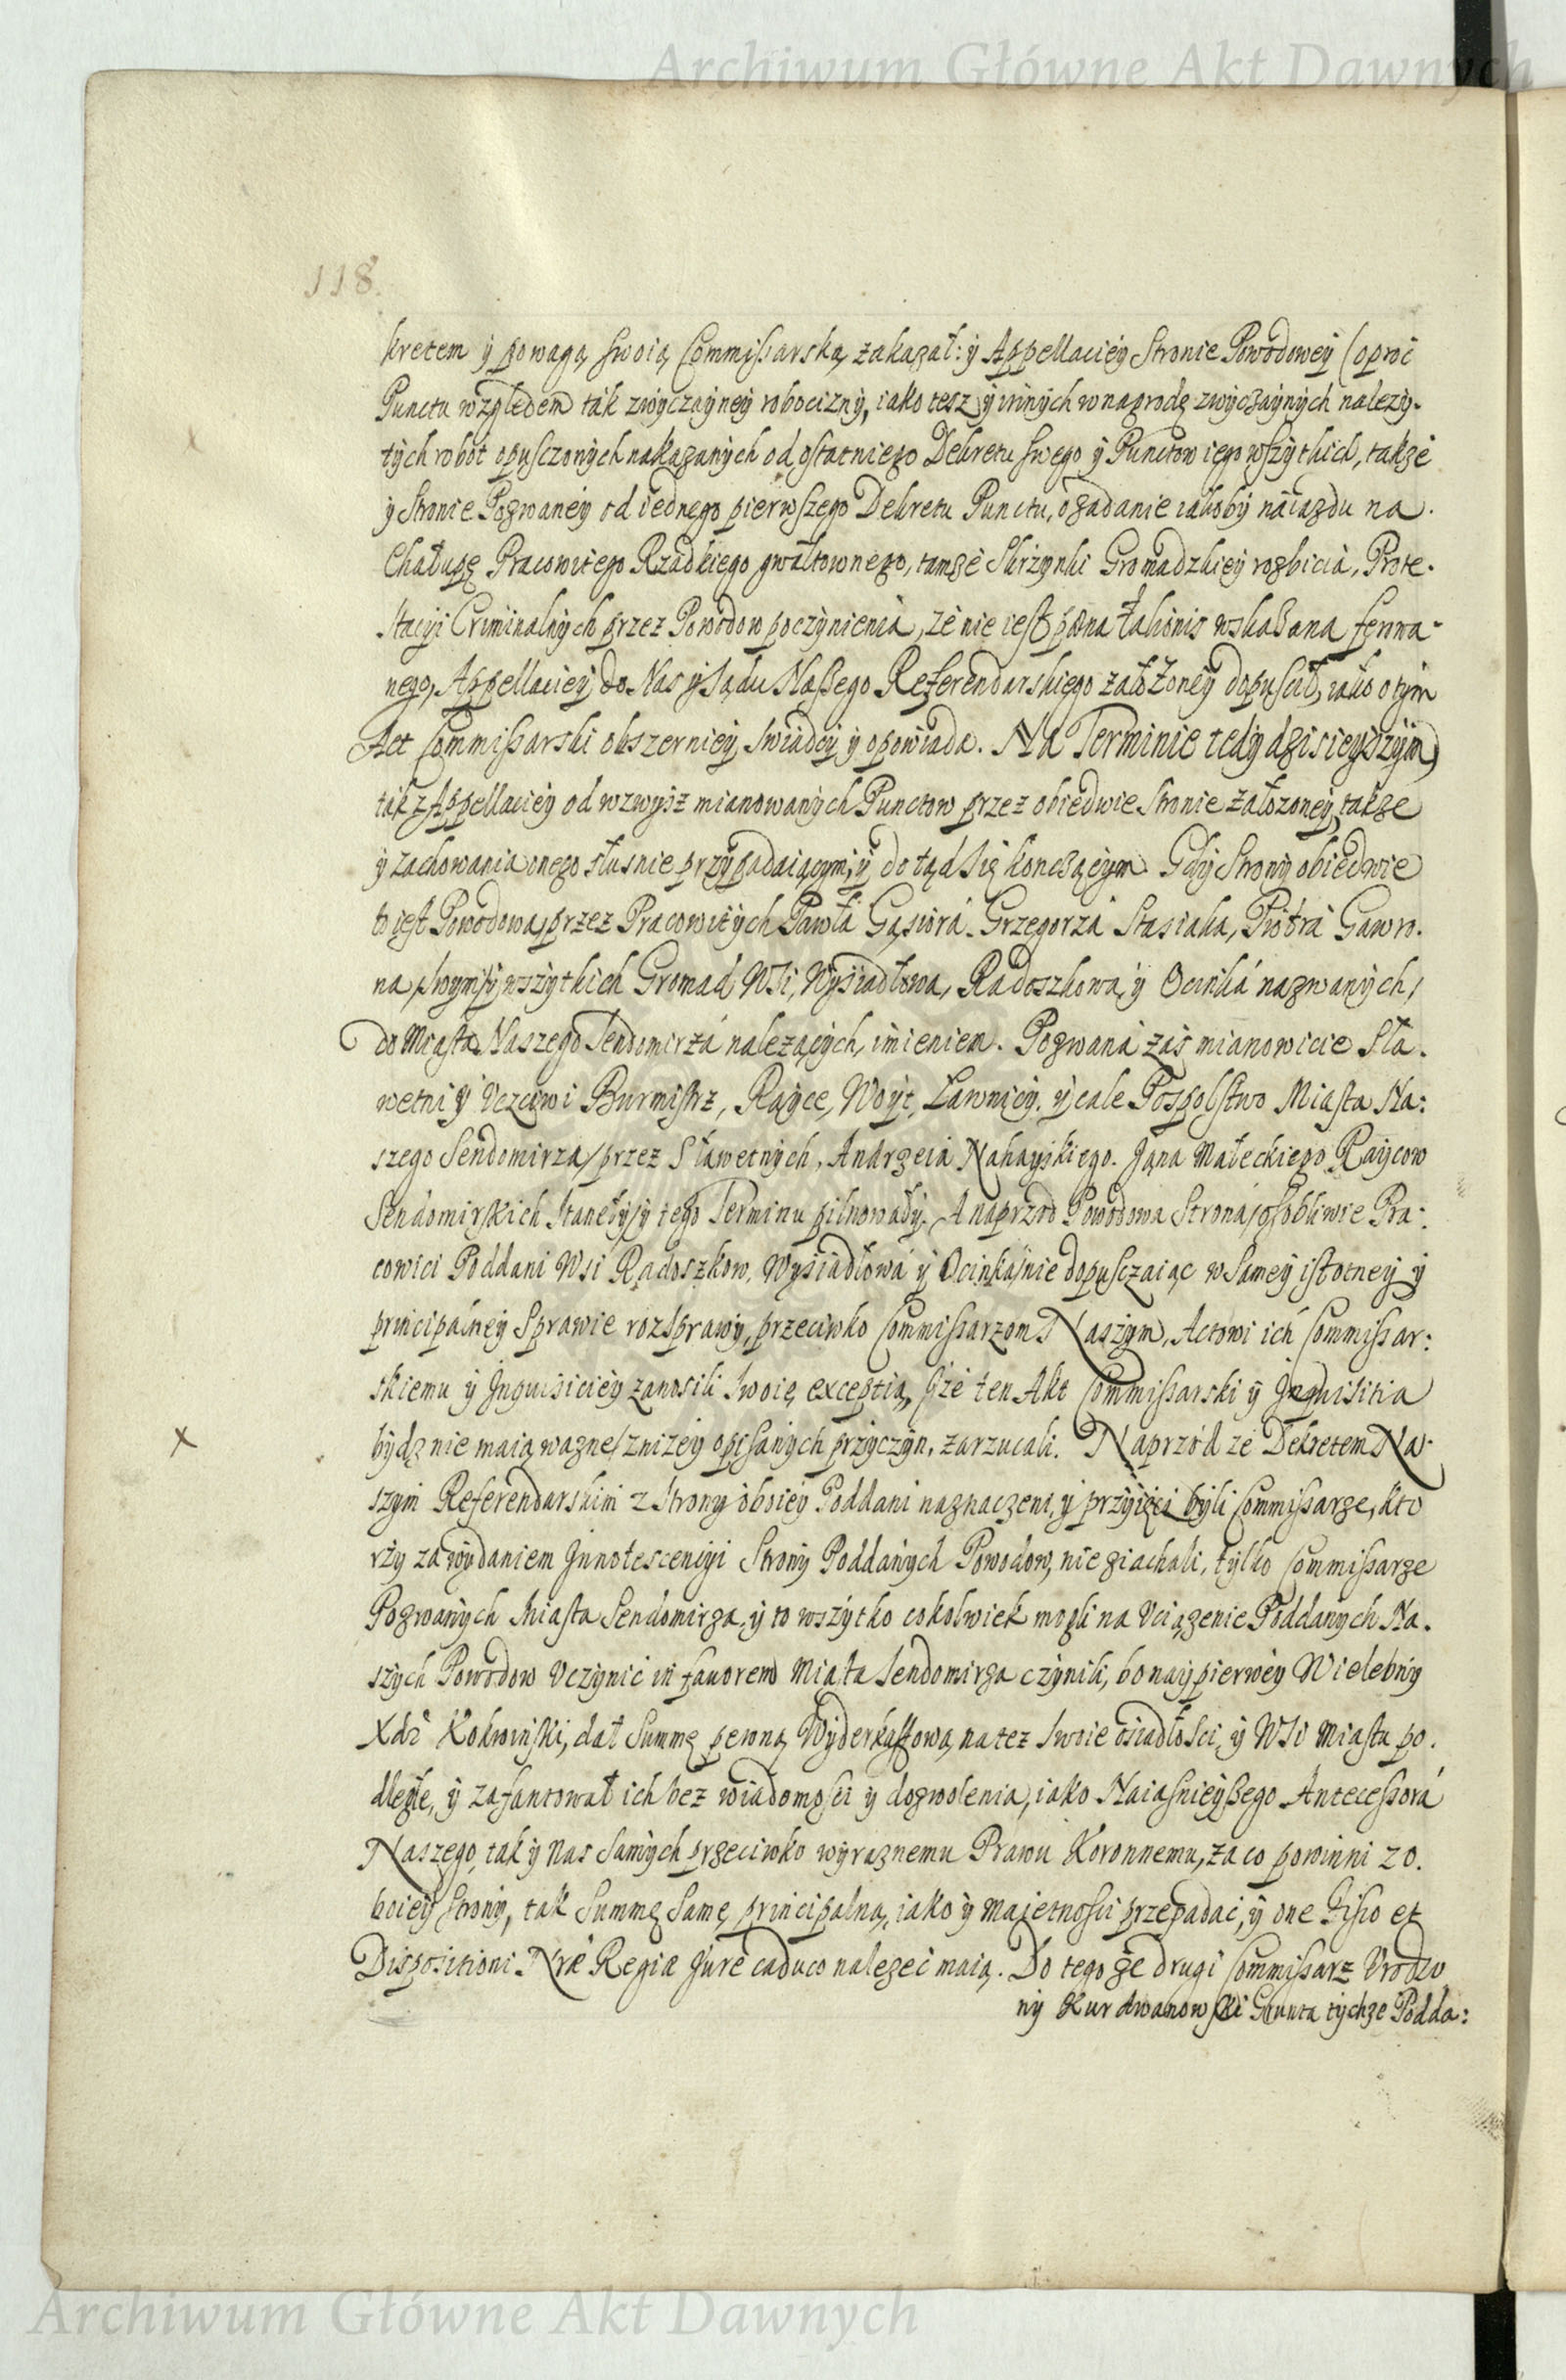 Archiwum Główne Akt Dawnych
118.
kretem ÿ powagą swoią Commissarską zakazał: ÿ Appellaciéÿ Stronie Powodoweÿ (oproć
Punctu względem ták zwÿczaÿneÿ robociznÿ, iako tesz ÿ innÿch w nagrodę zwÿczáÿnÿch nalezÿ-
tÿch robót opusczonÿch nakazanÿch od ostatniego Dekretu swego ÿ Punctow iego wszÿtkich, takze
ÿ Stronie Pozwanéÿ od iednego pierwszego Dekretu Punctu, o zadanie iakobÿ náiazdu na.
Chałupę Pracowitego Rządkiego gwałtownego, tamże Skrzÿnki Gromadzkieÿ rozbicia, Prote-
stacÿi Criminalnÿch przez Powodow poczÿnienia, że nie iest pœna talionis wskazana ferowa-
nego, Appellacieÿ do Nas ÿ Sądu Naszego Referendarskiego założonéÿ dopuscił, iako o tÿm
Act Commissarski obszernieÿ swiadcÿ ÿ opowiada. Na Terminie tedÿ dzisieÿszÿm
tak z Appellaciéÿ od wzwÿsz mianowanÿch Punctow przez obiedwie stronie założonéÿ, takze
ÿ zachowania onego słusnie przÿpadaiącÿm, ÿ do tąd się konczącÿm. Gdÿ Stronÿ obiedwie
to iest Powodowa, przez Pracowitÿch Pawła Gąsiorá. Grzegorza Stasiaka, Piotra Gawro-
na, swÿm ÿ wszÿtkich Gromad WSi, Wÿsiadłowa, Radoszkowa, ÿ Ocinká nazwanÿch,
do Miasta Naszego Sendomirza nalezącÿch, imieniem. Pozwana zaś mianowicie Sła-
wetni ÿ Vczciwi Burmistrz, Raÿce, Woÿt, Ławnicÿ. ÿ cale Pospolstwo Miasta Na:
szego Sendomirza, przez Sławetnÿch, Andrzeia Nahaÿskiego. Jana Małeckiego Raÿcow
Sendomirskich Stanełÿ, ÿ tego Terminu pilnowałÿ. A naprzod Powodowa Strona, osobliwie Pra-
cowici Poddani Wsi Radoszkow, Wÿsiadłowá ÿ Ocinka, nie dopusczaiąc w Saméÿ istotneÿ ÿ
principálneÿ Sprawie rozsprawÿ, przeciwko Commissarzom Naszÿm, Actowi ich Commissar:
skiemu ÿ Jnquisiciéÿ zanosili swoię exceptią, iże ten Akt Commissarski ÿ Jnquisitia
bÿdź nie maią wazne, z nizéÿ opisanÿch przÿczÿn, zarzucali. Naprzód ze Dekretem Na-
szÿm Referendarskim z Stronÿ oboiéÿ Poddani naznaczeni, ÿ przÿięci bÿli Commissarze, kto
rzÿ za wÿdaniem Jnnotescenÿi Stronÿ Poddanÿch Powodow, nie ziachali, tÿlko Commissarze
Pozwanÿch Miasta Sendomirza, ÿ to wszÿtko cokolwiek mogli na Vciązenie Poddanÿch Na-
szÿch Powodow Vczÿnić in fauorem Miasta Sendomirza czÿnili, bo naÿpierwéÿ Wielebnÿ
Xdz Kokwiński, dał Summę pewną Wÿderkaffową na tez swoie osiadłości, ÿ WSi Miastu po-
dległe, ÿ zafantował ich bez wiadomości ÿ dozwolenia, iako Naiasnieÿszego Antecessorá
Naszego, tak ÿ Nas Samÿch przeciwko wÿraznemu Prawu Koronnemu, za co powinni z o-
boiéÿ Stronÿ, tak Summę Samę principalną, iako ÿ majetności przepadać, ÿ one Fisco et
Dispositioni Nræ Regiæ Jure caduco nalezeć maią. Do tego że drugi Commissarz Vrodzo
nÿ Kurdwanowski Grunta tÿchze Podda:
Archiwum Główne Akt Dawnych